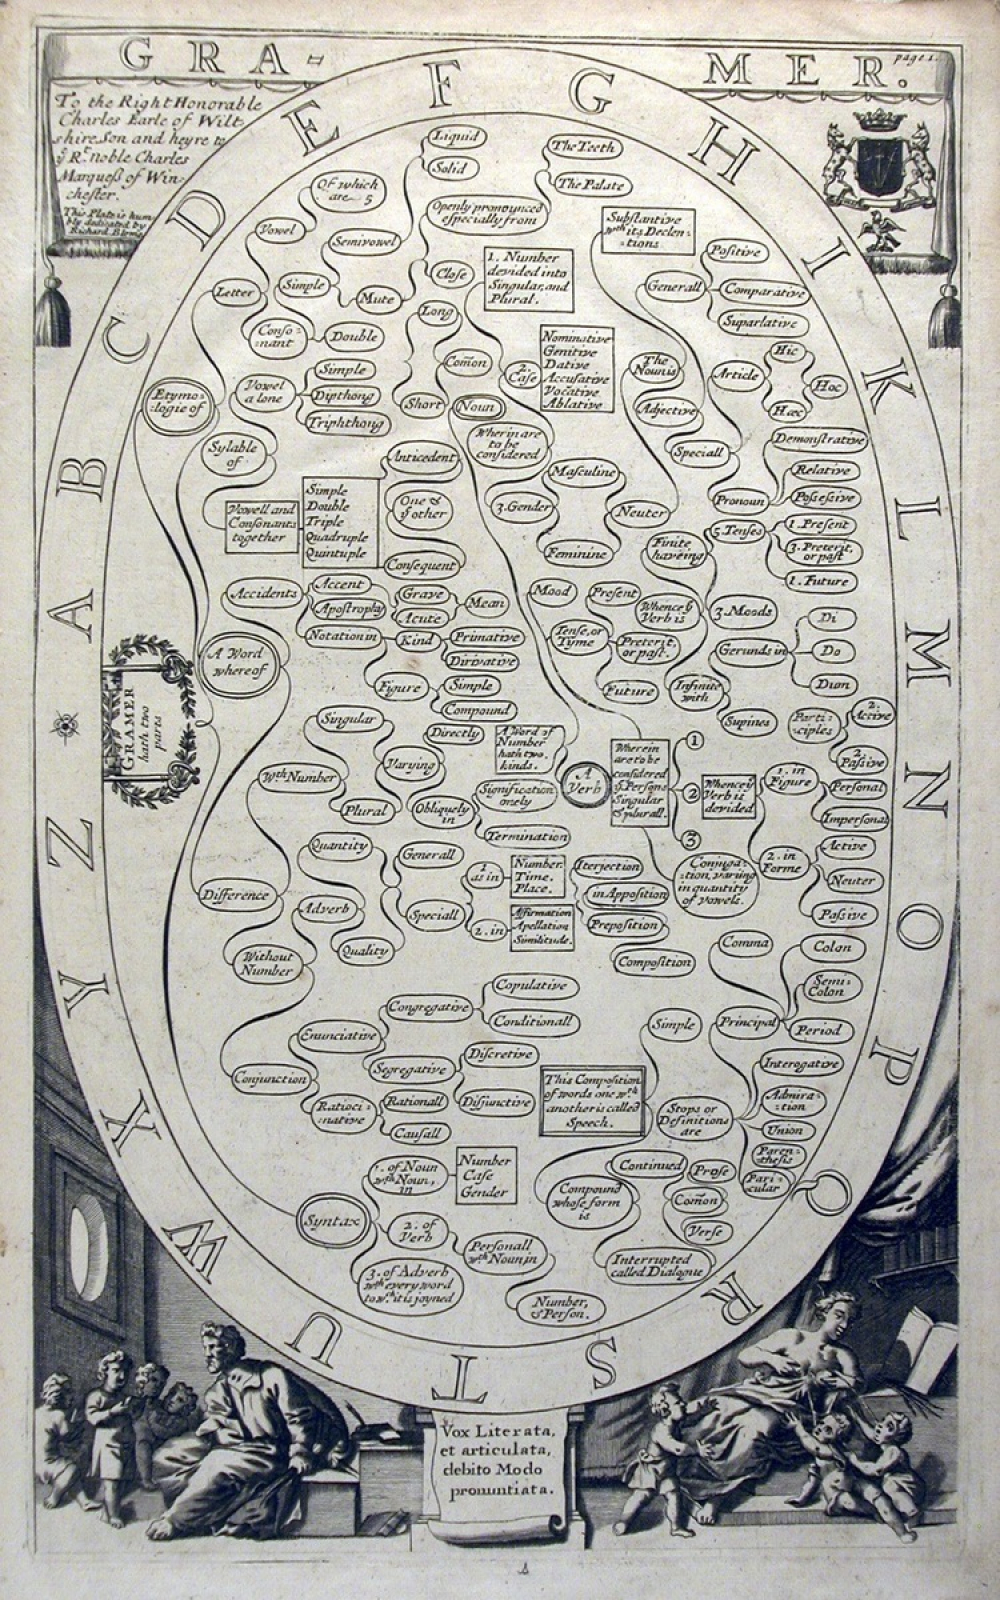 GRA=
MER.
page 1.
To the Right Honorable
Charles Earle of Wilt
shire Son and heyre to
ẏ Rᵗ. noble Charles
Marqueß of Win-
chester.
This Plate is hum
bly dedicated by
Richard Blome
A B C D E F G H I K L M N O P Q R S T U W X Y Z
GRAMER
hath two
parts
Etymo=
:logie of
Letter
Vowel
Of which
are 5
Conso=
:nant
Simple
Semivowel
Mute
Double
Liquid
Solid
Openly pronounced
especially from
The Teeth
The Palate
Close
Long
Comon
Short
Sylable
of
Vowel
a lone
Simple
Dipthong
Triphthong
Vowell and
Consonants
together
Simple
Double
Triple
Quadruple
Quintuple
Anticedent
One &
ẏ other
Consequent
A Word
where of
Accidents
Accent
Apostrophy
Notation in
Grave
Acute
Mean
Kind
Primative
Dirivative
Figure
Simple
Compound
Difference
Wth Number
Singular
Plural
Varying
Directly
Obliquely
in
Signification
onely
Termination
A Word of
Number
hath two
kinds.
Noun
1. Number
devided into
Singular, and
Plural.
2.
Case
Nominative
Genitive
Dative
Accusative
Vocative
Ablative
Wherin are
to be
considered
3. Gender
Masculine
Feminine
Neuter
The
Noun is
Substantive
wth its Declen=
:tions
Adjective
Generall
Positive
Comparative
Suparlative
Speciall
Article
Hic
Hæc
Hoc
Pronoun
Demonstrative
Relative
Possessive
A
Verb
Wherein
are to be
considered
ẏ Persons
Singular
& plurall.
1
2
3
Mood
Tense, or
Tyme
Present
Preterit,
or past.
Future
Whence ẏ
Verb is
Finite
haveing
5. Tenses
1. Present
3. Preterit,
or past
1. Future
3. Moods
Infinite
with
Gerunds in
Di
Do
Dum
Supines
Parti=
:ciples
2.
Active
2.
Passive
Whence ẏ
Verb is
devided
1. in
Figure
Personal
Impersonal
2. in
Forme
Active
Neuter
Passive
Conjuga=
:tion, variing
in quantity
of vowels.
Without
Number
Adverb
Quantity
Quality
Generall
Speciall
1
as in
Number.
Time.
Place.
2. in
Affirmation
Apellation
Similitude.
Iterjection
in Apposition
Preposition
Composition
Conjunction
Enunciative
Congregative
Copulative
Conditionall
Segregative
Discretive
Disjunctive
Ratioci=
:native
Rationall
Causall
Syntax
1. of Noun
wth Noun,
in
Number
Case
Gender
2. of
Verb
Personall
wth Noun in
Number,
& Person.
3. of Adverb
wth every word
to wch it is joyned
This Composition
of words one wth
another is called
Speech.
Simple
Compound
whose form
is
Continued
Prose
Comon
Verse
Interrupted
called Dialogue
Stops or
Definitions
are
Principal
Comma
Colon
Semi=
Colon
Period
Interogative
Admira=
:tion
Union
Paren=
:thesis
Pari=
cular
Vox Literata,
et articulata,
debito Modo
pronuntiata.